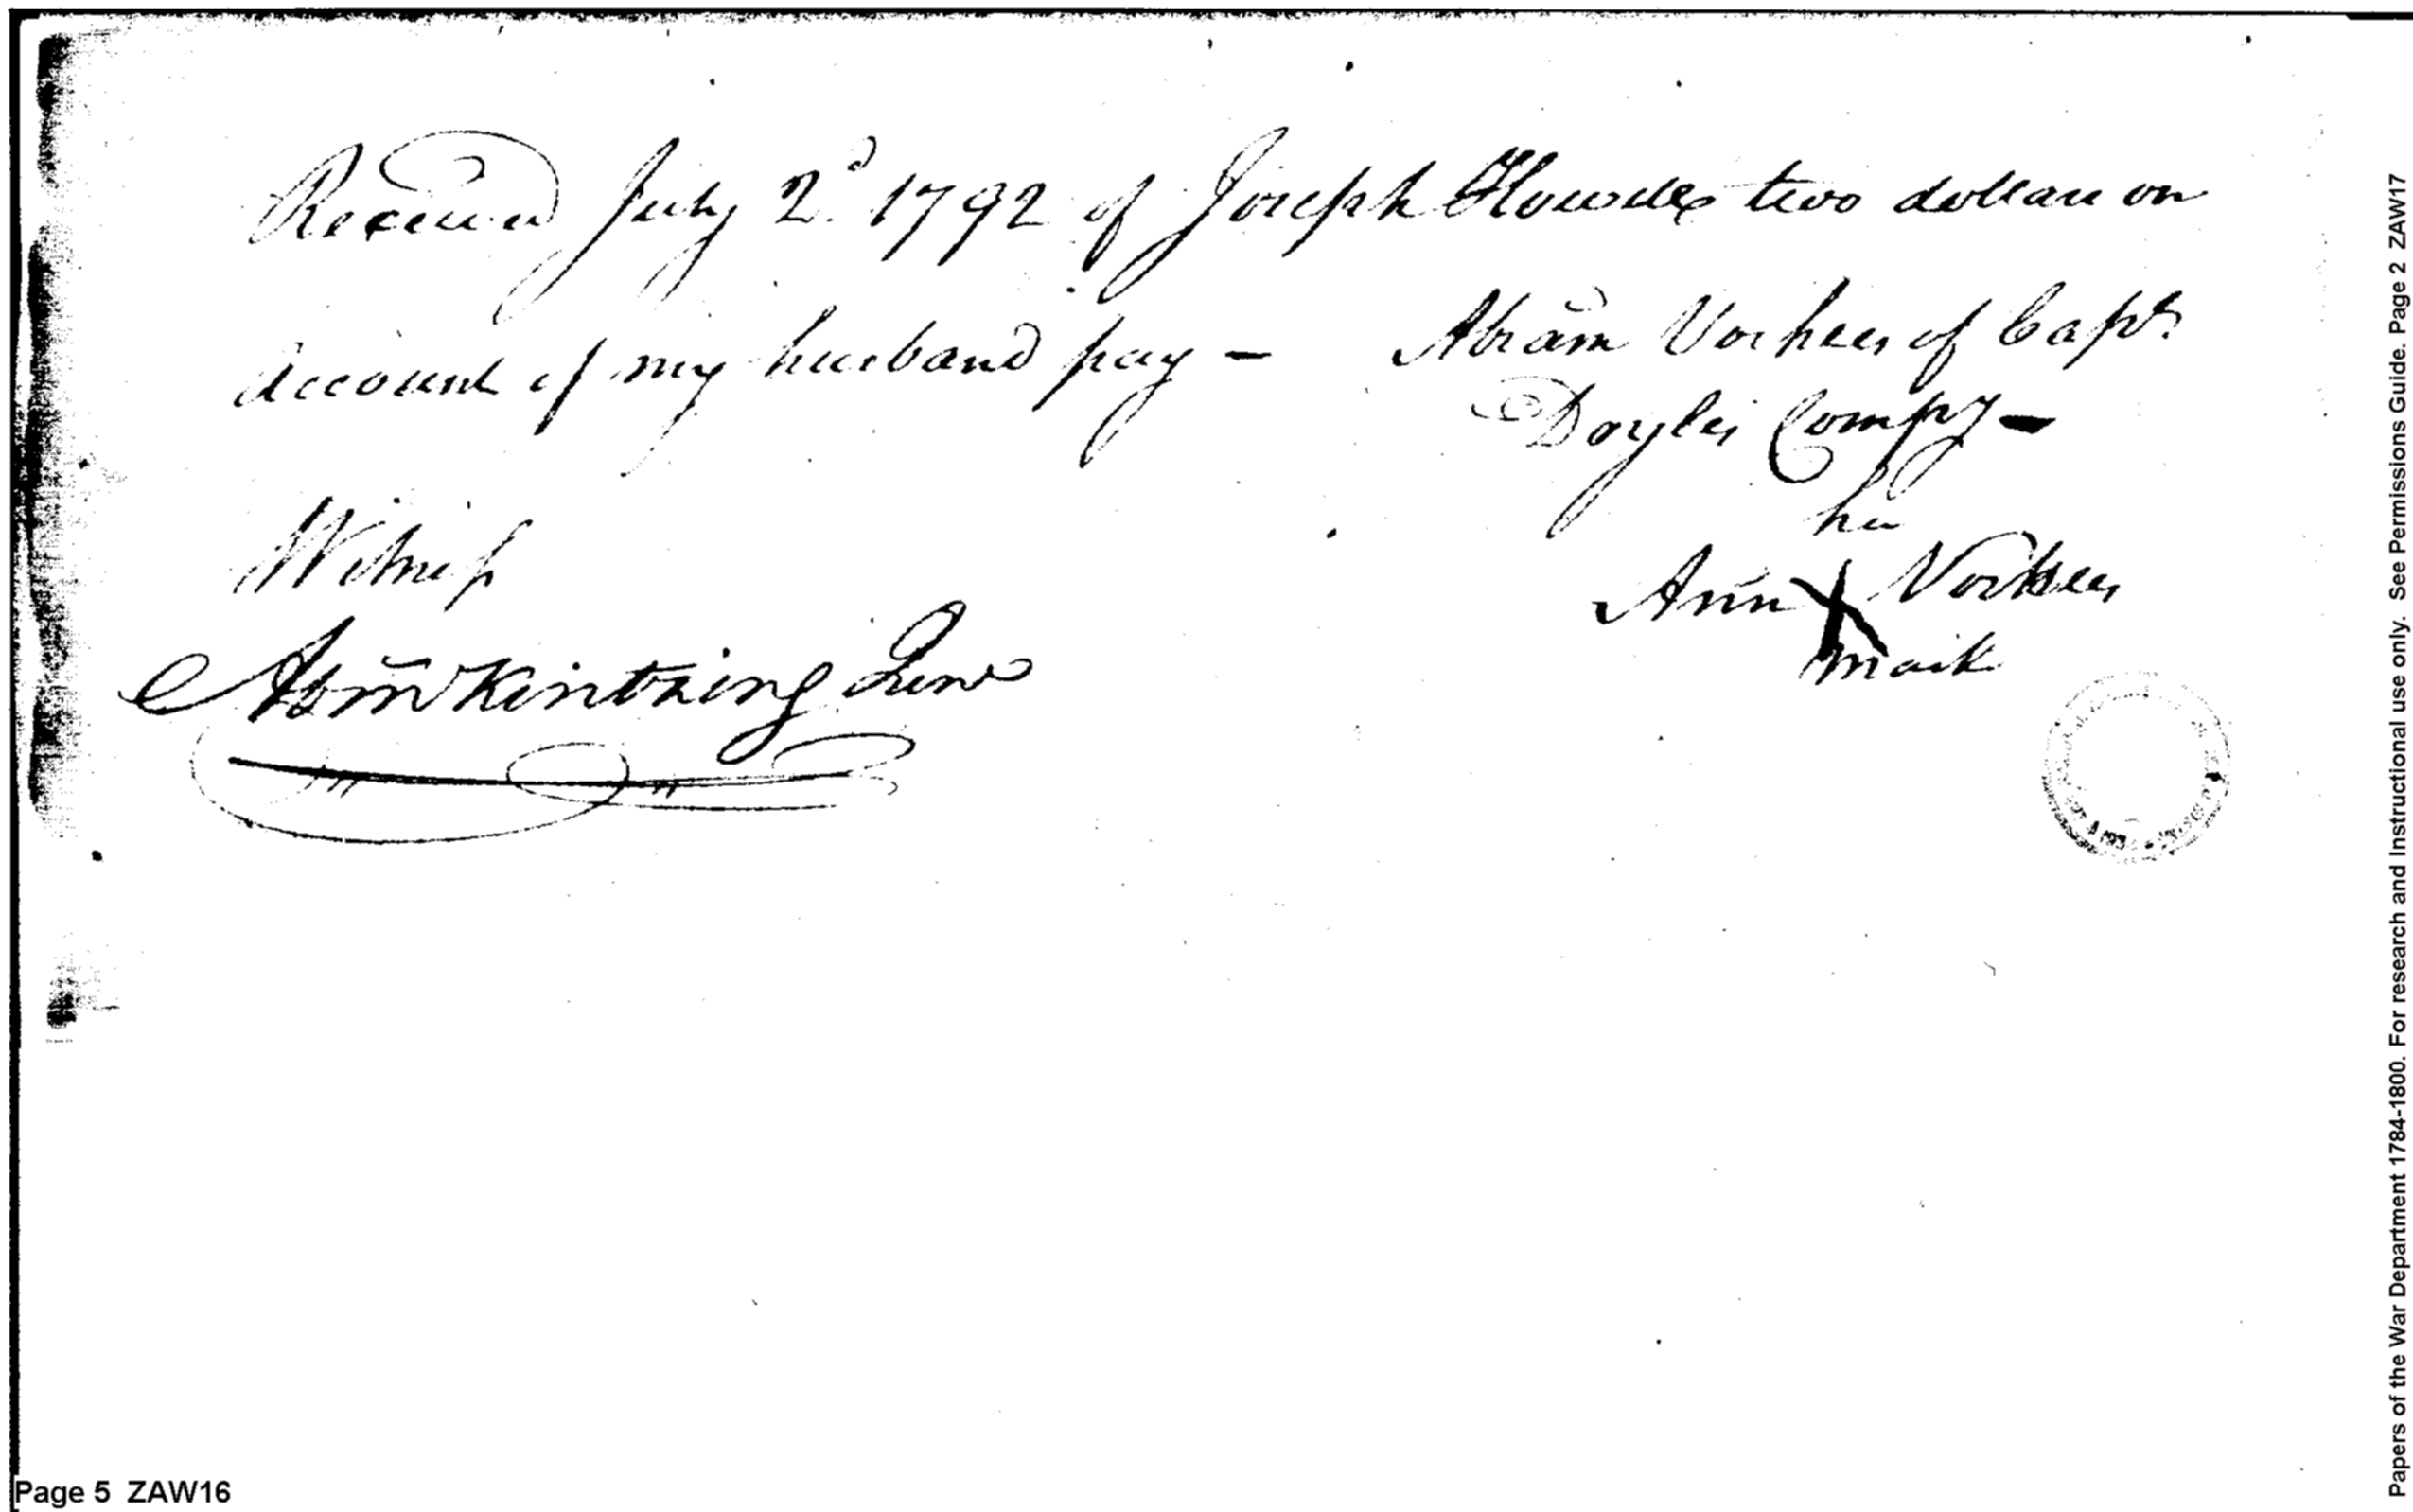 Received July 2d 1792 of Joseph Howell two dollars on
account of my husband pay - Abram Vorhees of Capt
Doyles Compy -
Witness
her
Ann X Vorhees
mark
Abm Kintzing Junr
Page 5 ZAW16
Papers of the War Department 1784-1800. For research and Instructional use only. See Permissions Guide. Page 2 ZAW17